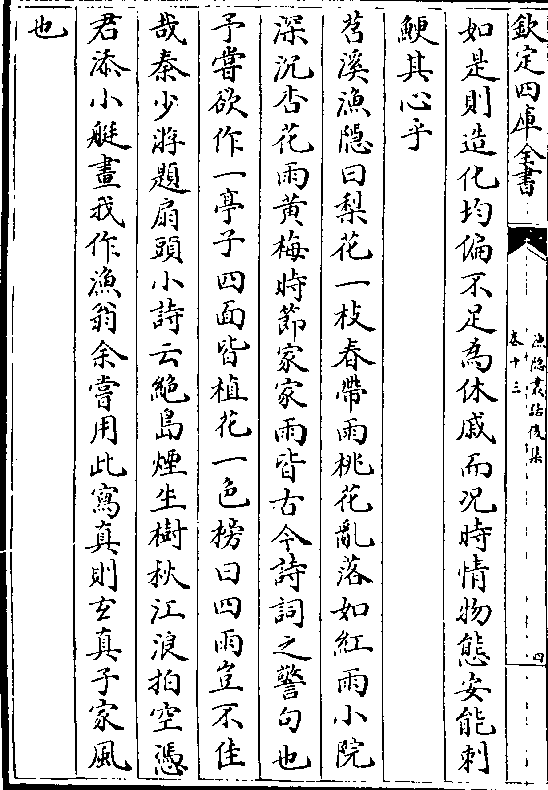 欽定四庫全書
漁隱叢話後集
卷十三
四
如是則造化均偏不足為休戚而况時情物態安能刺
鯁其心乎
苕溪漁隱曰梨花一枝春帶雨桃花亂落如紅雨小院
深沉杏花雨黄梅時節家家雨皆古今詩詞之警句也
予嘗欲作一亭子四面皆植花一色榜曰四雨豈不佳
哉秦少游題扇頭小詩云絶島煙生樹秋江浪拍空憑
君添小艇畫我作漁翁余嘗用此寫真則玄真子家風
也